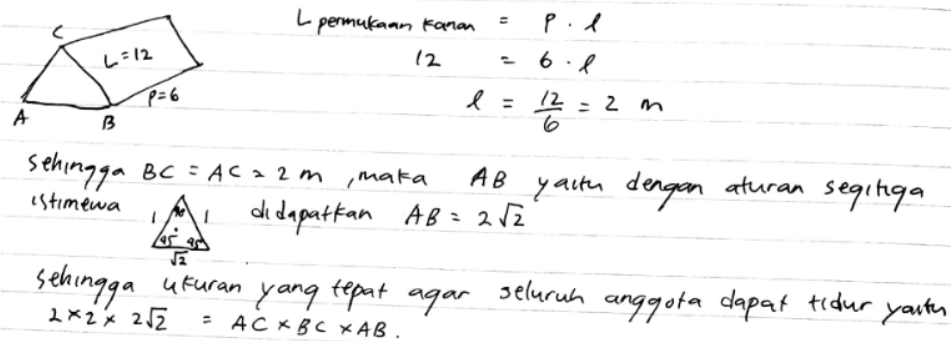 C
L = 12
P = 6
A
B
L permukaan kanan = P . l
12 = 6 . l
l = 12/6 = 2 m
Sehingga BC = AC = 2 m , maka AB yaitu dengan aturan segitiga
istimewa 1 90 1 45° 45° √2 didapatkan AB = 2√2
Sehingga ukuran yang tepat agar seluruh anggota dapat tidur yaitu
2 × 2 × 2√2 = AC × BC × AB .